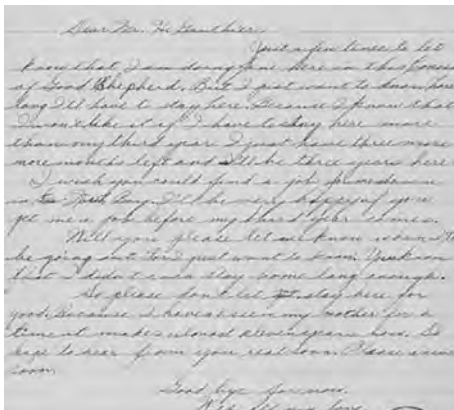 Dear Mr. H. Gauthier,
Just a few lines to let
know that I am doing fine here in this
of Good Shepherd. But I just want to know how
long I'll have to stay here. Because I know that
I won't like it if I have to stay here more
than my third year. I just have three more
more months left and I'll be three years here
I wish you could find a job for
in Bay. I'll be very happy if you
get me a job before my third year comes.
Will you please let me know when I'll
be going out for I just want to know. You know
that I didn't stay some long enough.
So please don't let stay here for
good. Because I haven't seen my mother for a
time it makes eleven years now. So
hope to hear from you real soon. Please answer
soon.
Good bye for now.